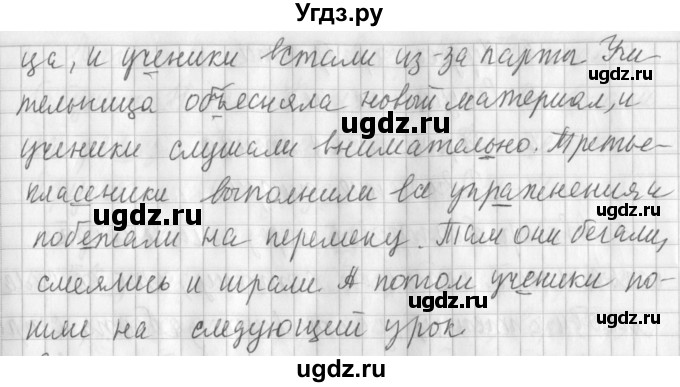 Угдз.ру
ца, и ученики встали из-за парты Учи-
тельница объесняла новый материал, и
ученики слушали внимательно. Третье-
класеники выполнили все упражнения и
побежали на перемену. Там они бегали,
смеялись и играли. А потом ученики по-
шли на следующий урок
ugdz.ru
ugdz.ru
ugdz.ru
ugdz.ru
ugdz.ru
ugdz.ru
ugdz.ru
ugdz.ru